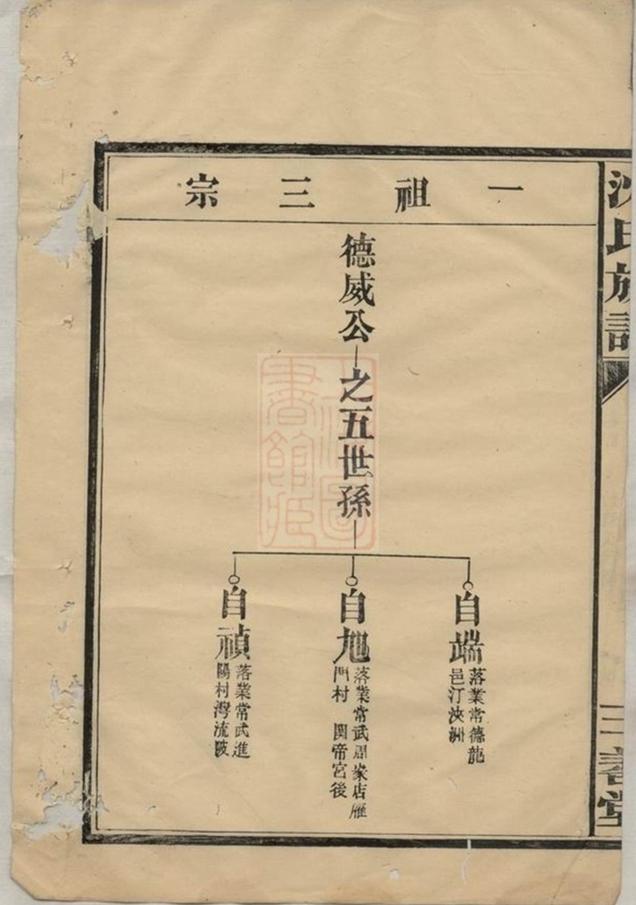 一祖三宗
德威公
之五世孫
自端
落業常德龍
邑汀浹洲
自旭
落業常武周家店雁
門村 関帝宮後
自禎
落業常武進
陽村灣流陂
氏族
三善堂